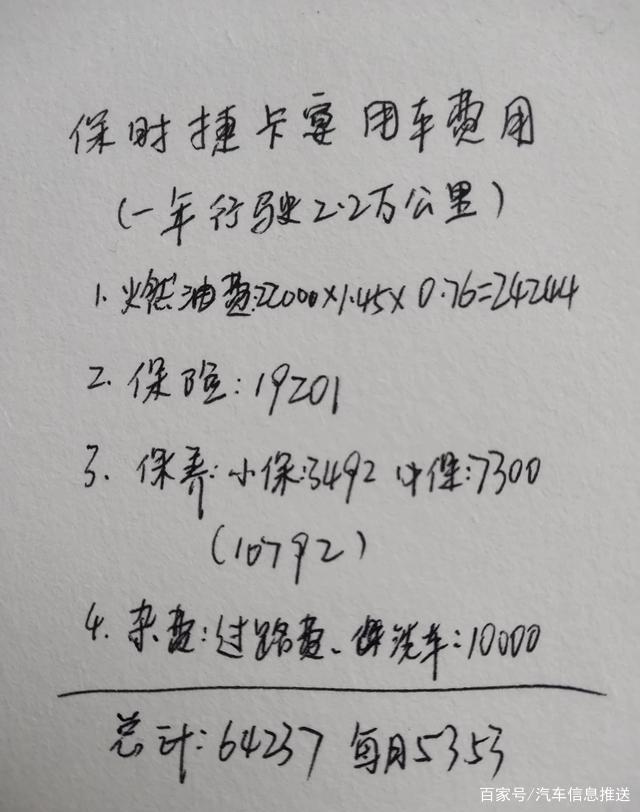 保时捷卡宴 用车费用
(一年行驶2.2万公里)
1. 燃油费:22000×1.45×0.76=24244
2. 保险:19201
3. 保养:小保:3492 中保:7300
(10792)
4. 杂费:过路费、洗车:10000
总计:64237 每月5353
百家号/汽车信息推送